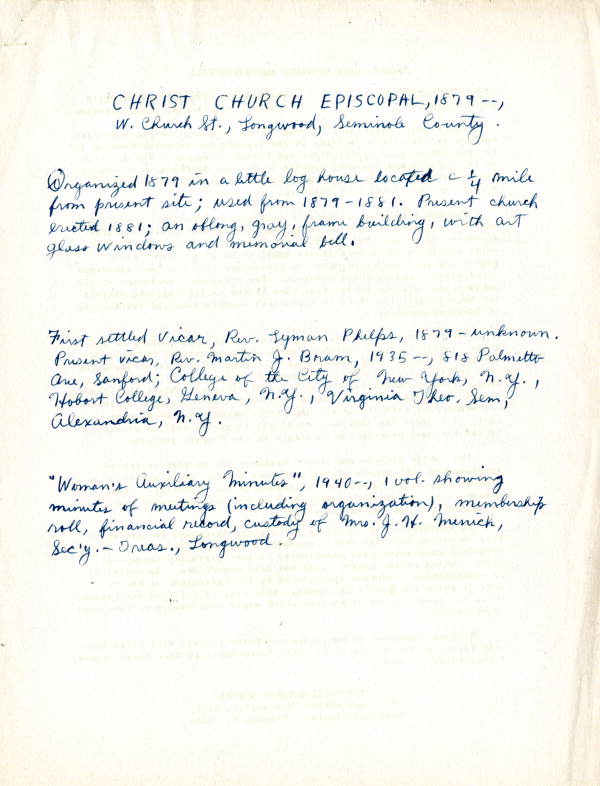 CHRIST CHURCH EPISCOPAL, 1879 --,
W. Church St., Longwood, Seminole County.
Organized 1879 in a little log house located c 1/4 mile
from present site; used from 1879-1881. Present church
erected 1881; an oblong, gray, frame building, with art
glass windows and memorial bell.
First settled Vicar, Rev. Lyman Phelps, 1879-unknown.
Present vicar, Rev. Martin J. Bram, 1935 --, 818 Palmetto
Ave, Sanford; College of the City of New York, N.Y.,
Hobart College, Geneva, N.Y., Virginia Theo. Sem,
Alexandria, N.Y.
"Woman's Auxiliary Minutes", 1940--, 1 vol. showing
minutes of meetings (including organization), membership
roll, financial record, custody of Mrs. J. H. Menick,
Sec'y. - Treas., Longwood.